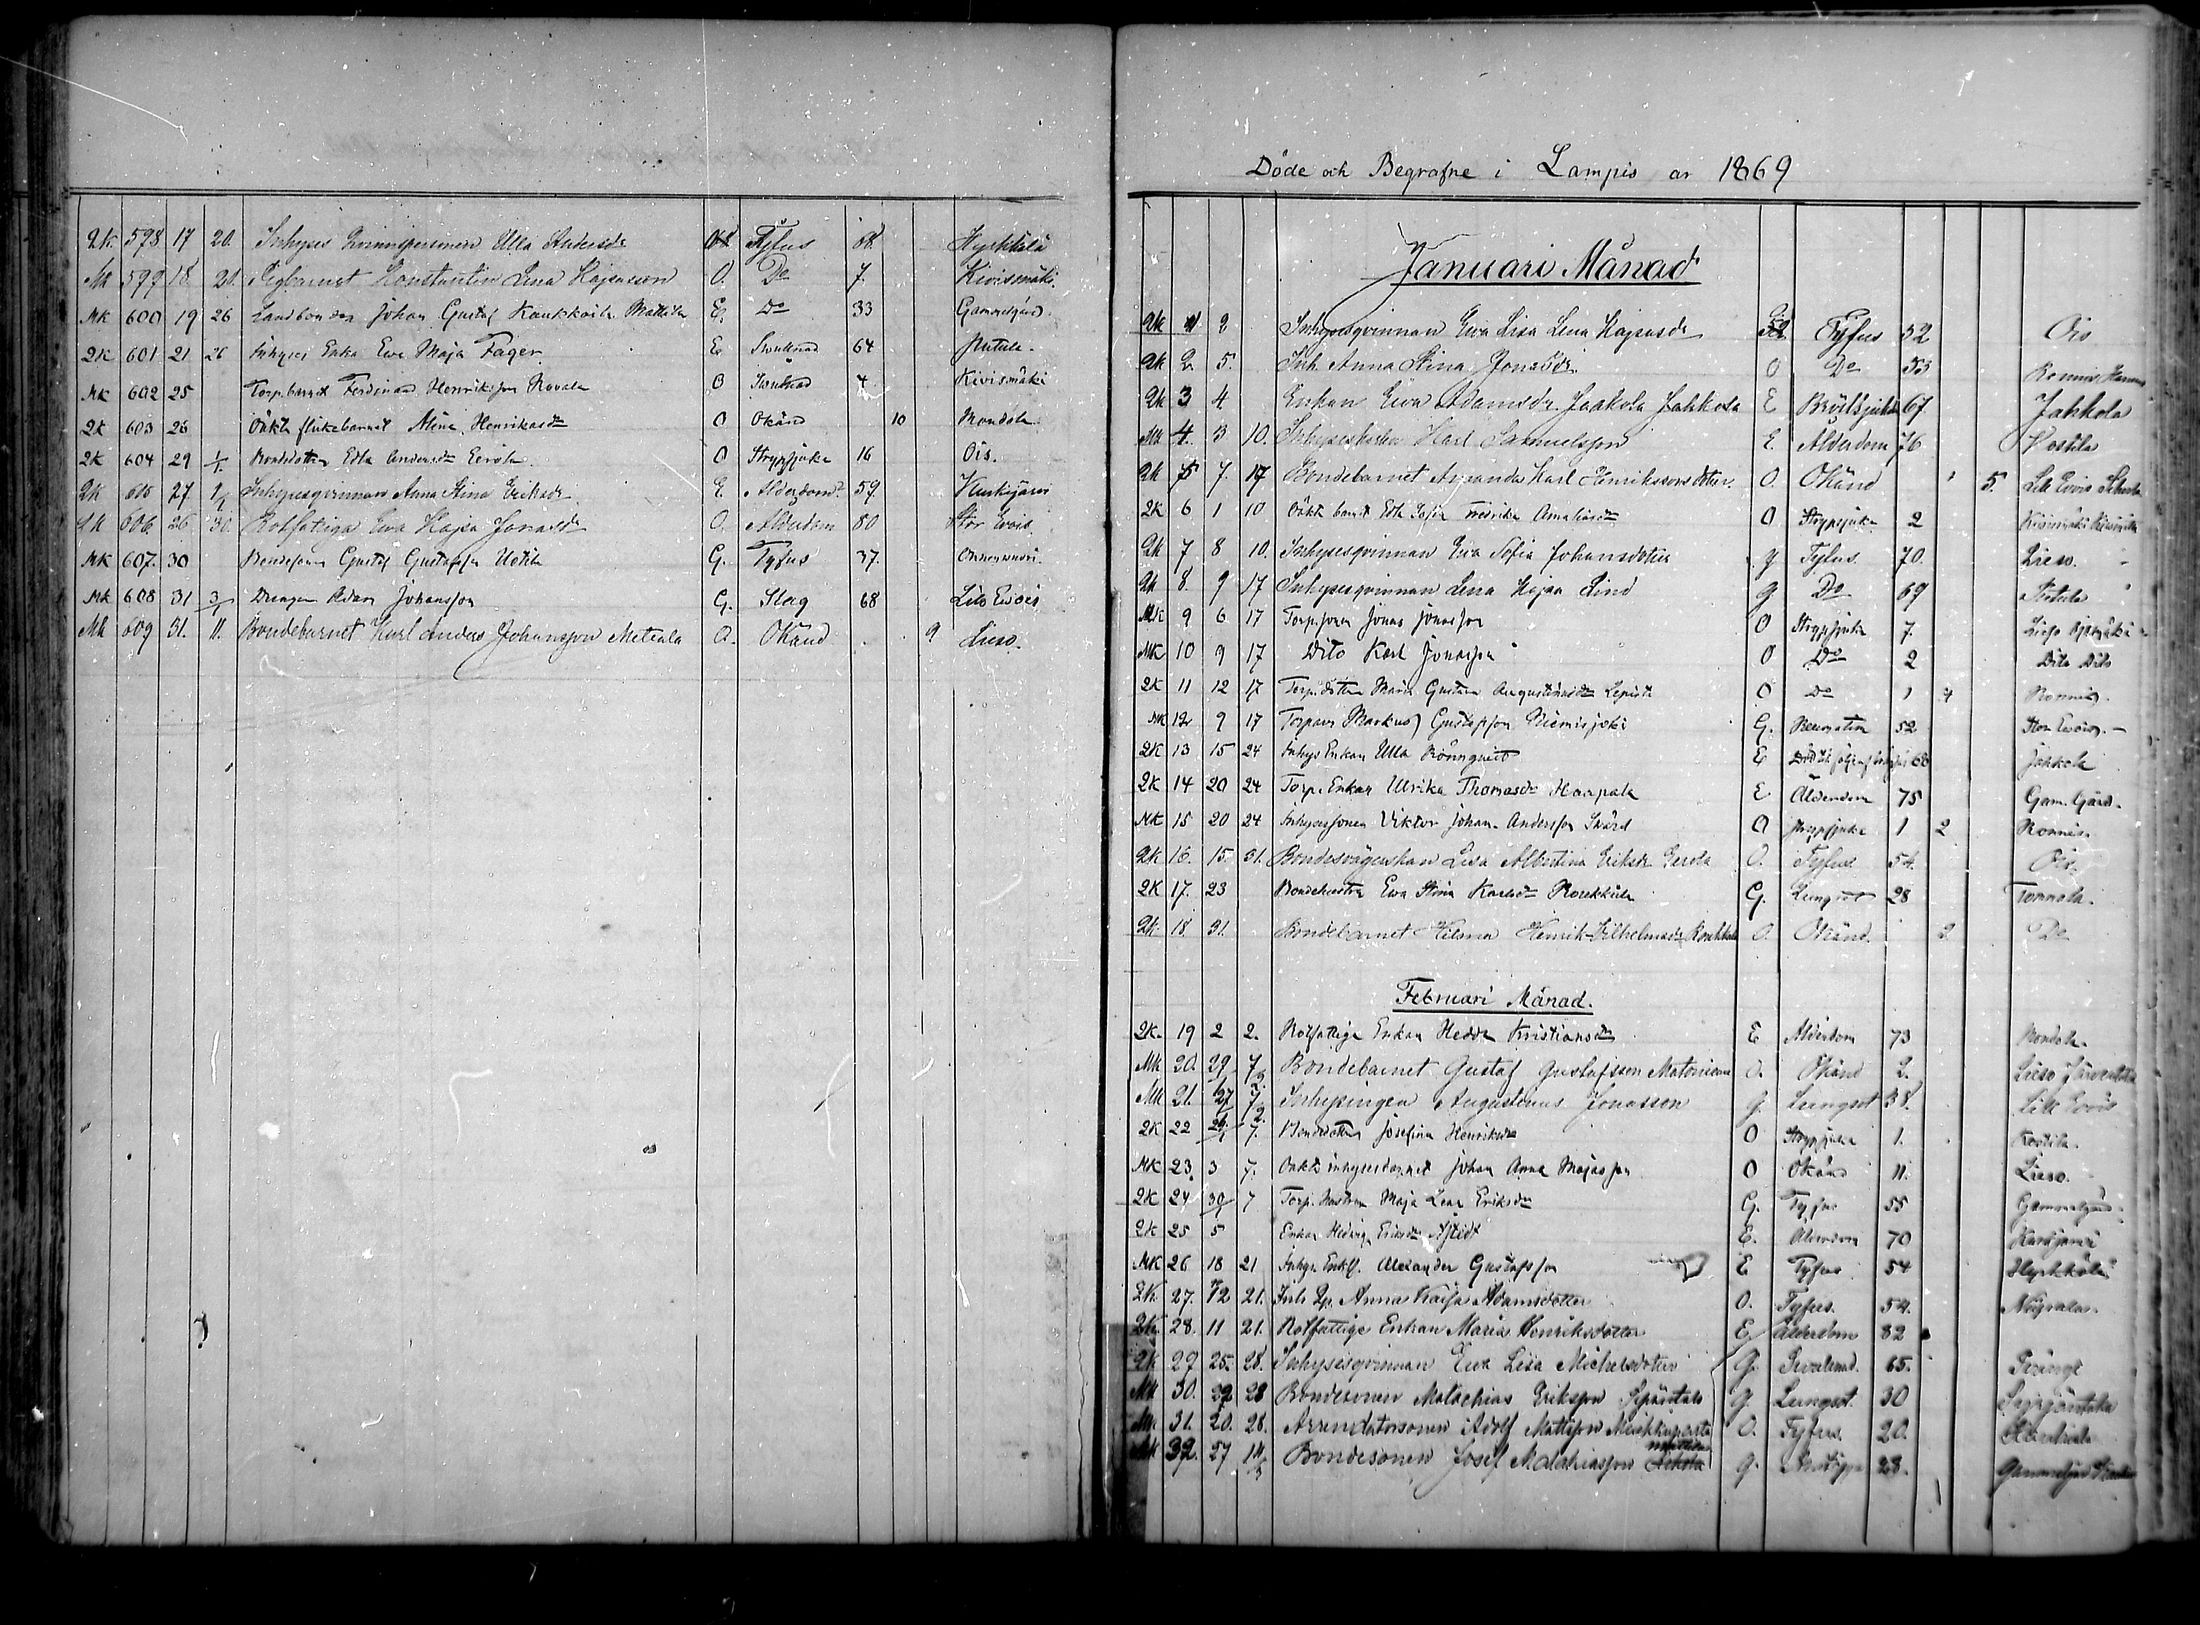 Qk. 598 17 20. Inhyses Qvinnspersonen Ulla Andersdr Tyfus Hyrkkälä
Mk 599 18. 20. Pigbarnet Konstantin Lena Kajsasson O. Do 7. Kivismäki.
Mk 600 19 26 Landbonden Johan Gustaf Kaukkola Mattila E. Do 33 Gammelgård.
Qk 601 21 26 Inhyses Enka Eva Maja Fager E 64 Pitula.
Mk 602 25 Torp.barnet Ferdinand Henriksson Rovala O 4 Kivismäki
Qk 603 26 Oäkta flickebarnet Alina Henriksdr O Okänd 10 Mondola
Qk 604 29 1/1 Bondedottern Edla Andersdr Eerola. O Strypsjuka 16 Ois.
Qk 605 27. Inhysesqvinnan Anna Stina Eriksdr E. Ålderdom 59. Kurkijärvi
Qk 606. 26 30. Rotfatiga Eva Kajsa Jonasdr O. Ålderdom 80 Stor Evois
Mk 607. 30 Bondesonen Gustaf Gustafsson Uotila G. Tyfus 37.
Mk 608 31 3/1 Drengen Adam Johansson G. Slag 68 Lill Evois
Mk 609 31. 11. Bondebarnet Karl Anders Johansson Metsala O. Okänd 9 Lieso.
Döde och Begrafne i Lampis år 1869
Januari Månad
Qk 1 2 Inhysesqvinnan Eva Lisa Lena Kajsasdr Tyfus 52 Ois
Qk 2 5. Inh. Anna Stina Jonasdr. O Do 53 Ronnis
Qk 3 4 Enkan Eva Adamsdr Jaakola Jahkola E Bröstsjukdom 67 Jahkola
Mk 4. 3 10. Karl Samuelsson E. Ålderdom 76 Kostila
Qk 5 7. 17 Bondebarnet Amanda Karl Henrikssonsdotter. O. Okänd 5. Lill Evois
Qk 6 1 10 Oäkta barnet Edla Sofia Fredrika Amaliasdr O Strypsjuka 2 Kivismäki
Qk 7 8 10. Inhysesqvinnan Eva Sofia Johansdotter G Tyfus. 70. Lieso.
Qk 8. 9 17 Inhysesqvinnan Lena Kajsa Lind G Do 69 Pitula
Mk 9 6 17 Torp.sonen Jonas Jonasson O Strypsjuka 7. Lieso
Mk 10 9 17 Dito Karl Jonasson O Do 2 Dito Dito
Qk 11 12 17 Torp.dottern Maria Gustava Augustinusdr Lepistö O Do 1 4 Ronnis.
Mk 12 9 17 Torparen Markus Gustafsson Niemisjoki G. 52 Stor Evois.
Qk 13 15 24 Inhys Enkan Ulla Rönnqvist E 68 Jahkola
Qk 14 20 24 Torp. Enkan Ulrika Thomasdr Haapala E Ålderdom 75 Gam. Gård.
Mk 15 20 24 Inhysessonen Viktor Johan Andersson Svärd O Strypsjuka 1 2 Ronnis.
Qk 16. 15 31. Lisa Albertina Eriksdr Eerola O. Tyfus 54. Ois.
Qk 17. 23 Bondehustru Eva Stina Karlsdr Roukkula G. Lungsot 28 Tommola.
Qk 18 31. Bondebarnet Hilma Henrik Vilhelmsdr O. Okänd. 2 Do
Februari Månad.
Qk. 19 2 2. Rotfattige Enkan Hedda Kristiansdr E Ålderdom 73 Mondola.
Mk 20. 29 7/2 Bondebarnet Gustaf Gustafsson O. Okänd 2. Lieso
Mk 21. 27 7/2 Inhysingen Augustinus Jonasson G. Lungsot 38. Lill Evois
Qk 22 7. Bondedottern Josefina Henriksdr O Strypsjuka 1. Kostila.
Mk 23. 3 7. Oäkta inhysesbarnet Johan Anna Majasson O Okänd 11. Lieso.
Qk 24 30/1 7 Torp. hustrun Maja Lena Eriksdr G. Tyfus 55 Gammelgård.
Qk 25 5 Enkan Hedvig Eriksdr E. Ålderdom 70 Kurkijärvi
Mk 26 18 21 Inhys. Enkl. Alexander Gustafsson E Tyfus 54 Hyrkkälä
Qk 27. 12 21. Inh. Qp. Anna Kaisa Adamsdotter O. Tyfus. 54.
Qk. 28. 11 21. Rotfattige Enkan Maria Henriksdotter E. Ålderdom 82
Qk 29 25. 28. Inhysesqvinnan Eva Lisa Michelsdotter G. 65.
Mk 30. 22 28 Bondesonen Malachias Eriksson G Lungsot. 30
Mk. 31. 20. 28. Arrendatorsonen Adolf Mattsson O. Tyfus. 20.
Mk 32. 27 14/3 Bondesonen Josef Malachiasson G. 28. Gammelgård